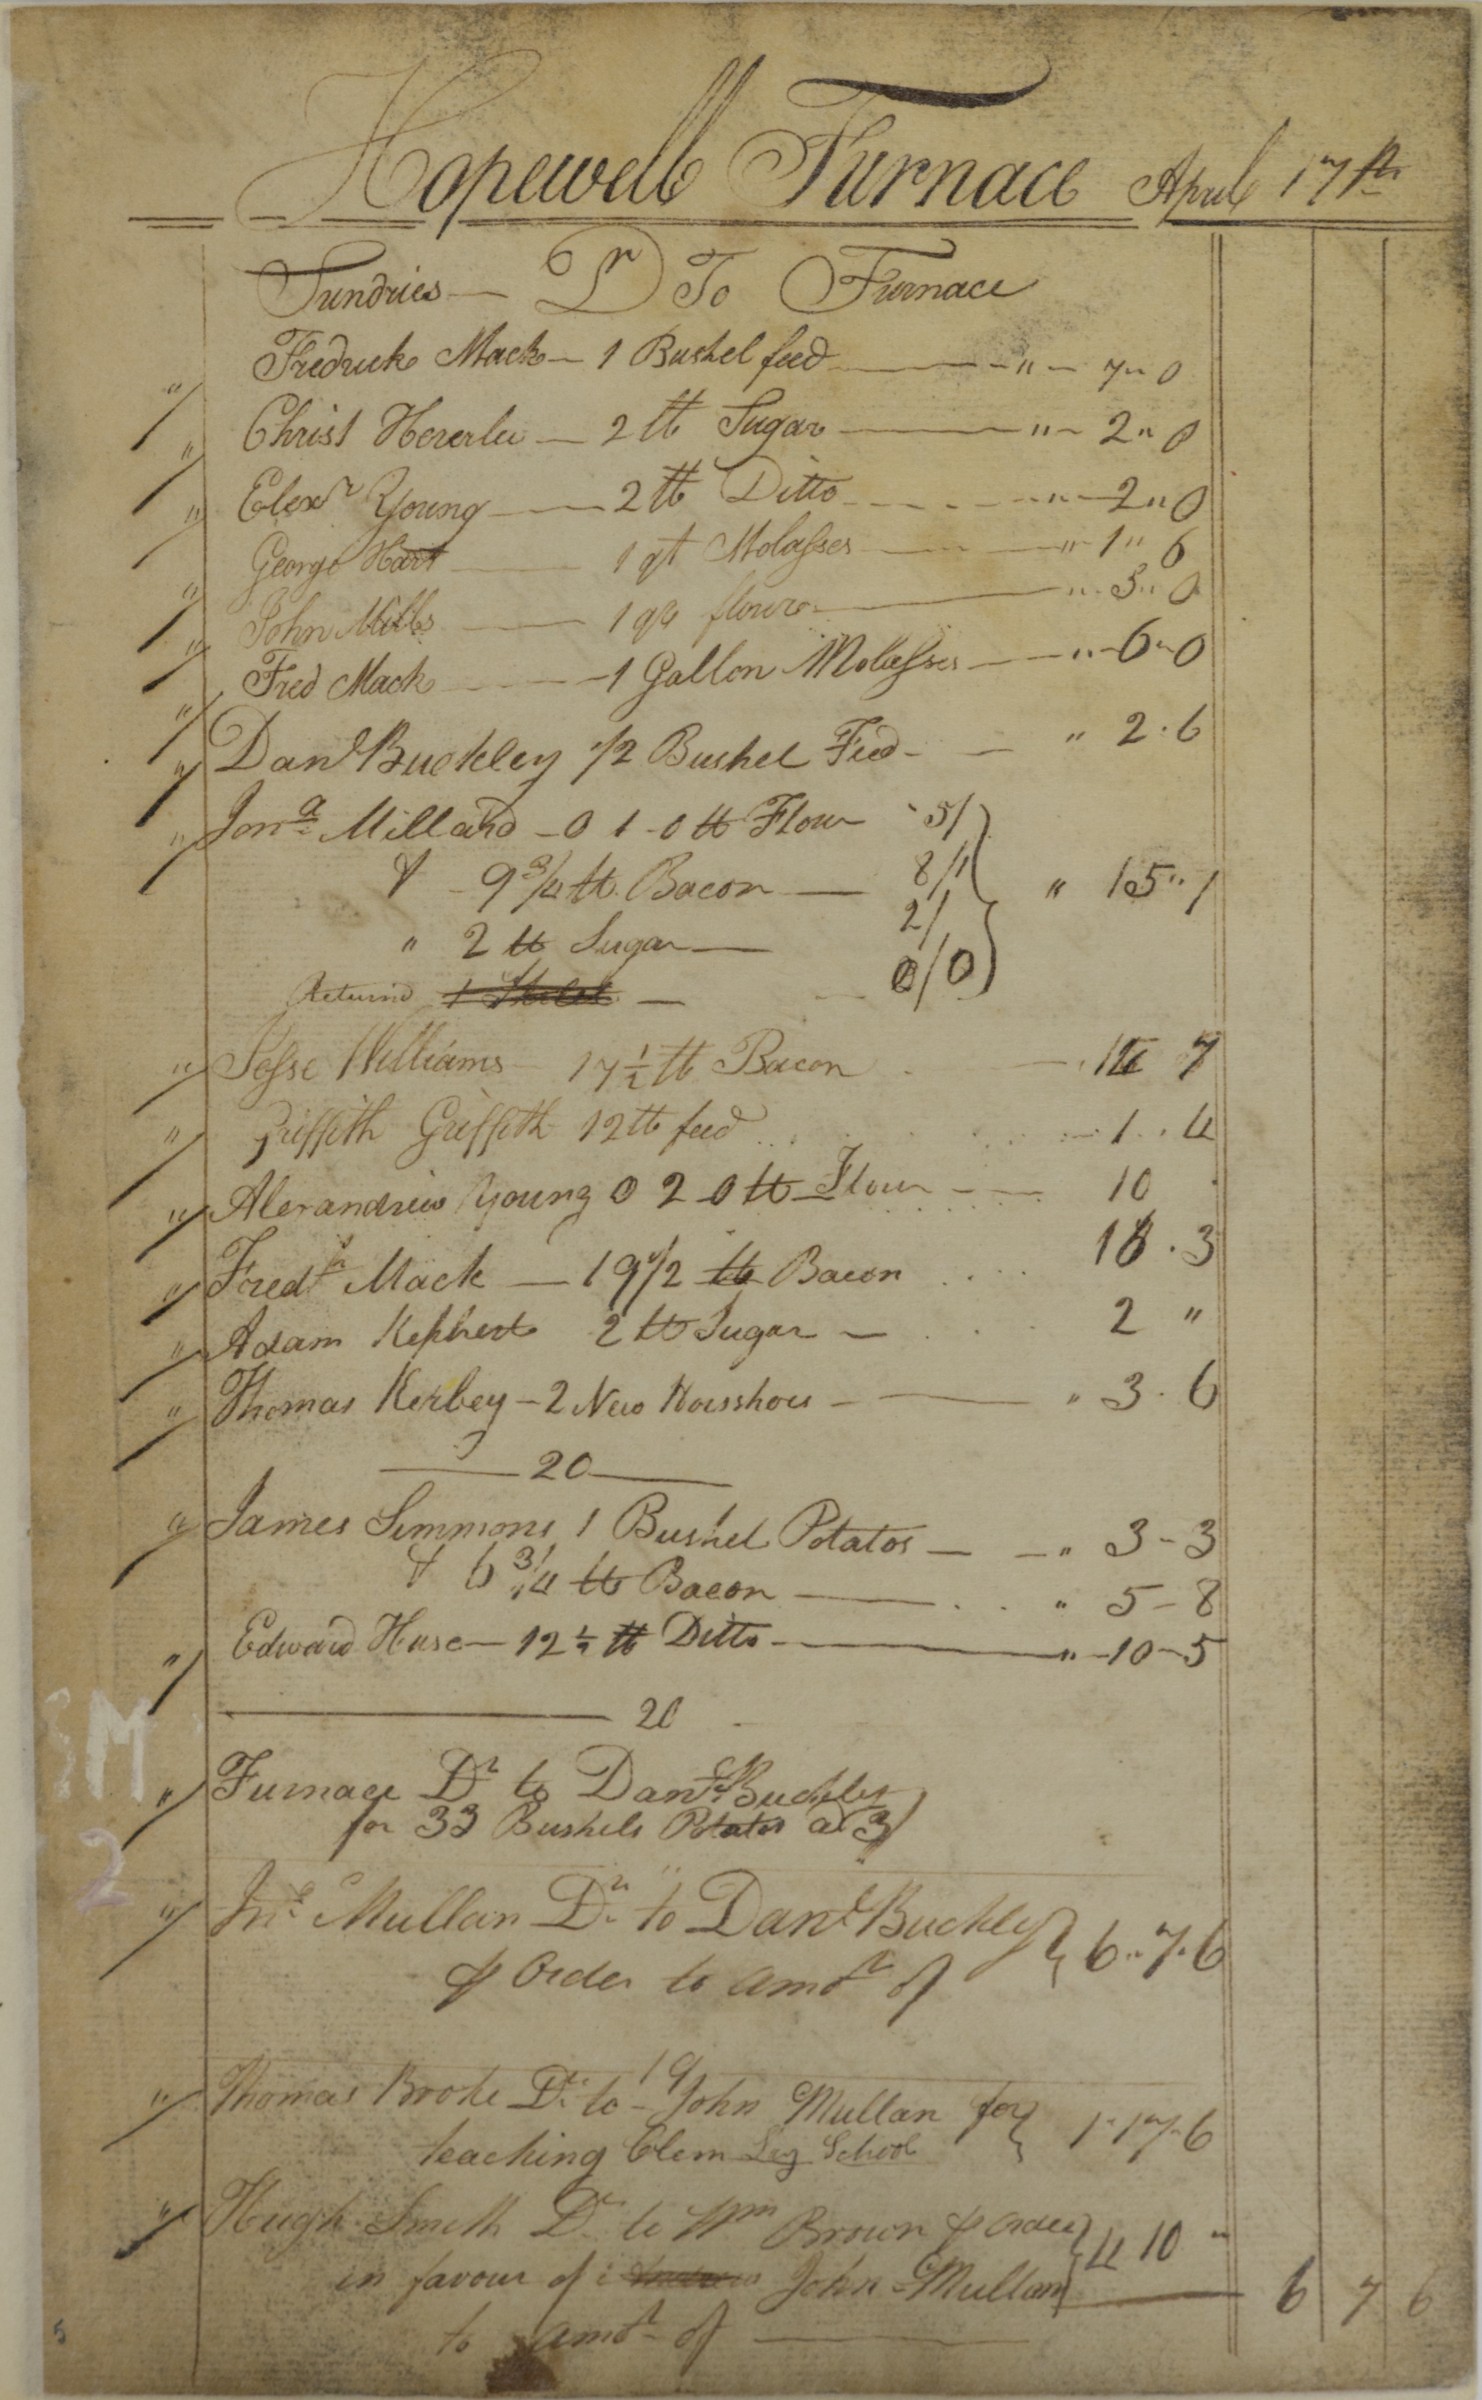 Hopewell Furnace April 17th
Sundries — Dr To Furnace
Fredrick Mack — 1 Bushel feed — " — 7 " 0
" Christ Hererlu — 2 lb Sugar — " — 2 " 0
" Elexr Young — 2 lb Ditto — " — 2 " 0
" George Hart — 1 qt Molasses — " 1 " 6
" John Mills — 1 qr flour — " 5 " 0
" Fred Mack — 1 Gallon Molasses — " 6 " 0
" Danl Buckley 1/2 Bushel Feed — " 2 . 6
" Jona Millard — 0 1 0 lb Flour 5/
& 9 3/4 lb Bacon — 8/1 " 15 " 1
" 2 lb Sugar — 2/
Returnd — 0/0
" Jesse Williams — 17 1/2 lb Bacon — 14 7
" Griffith Griffith 12 lb feed — 1 . 4
" Alexandrew Young 0 2 0 lb Flour — 10
" Fredk Mack — 19 1/2 lb Bacon 18 . 3
" Adam Kephert 2 lb Sugar — 2 "
" Thomas Kerbey — 2 New Horsshous — " 3 . 6
— 20 —
" James Simmons 1 Bushel Potatos — " 3 - 3
& 6 3/4 lb Bacon — " 5 - 8
" Edward Huse — 12 1/2 lb Ditto — " 10 - 5
— 20
" Furnace Dr to Danl Buckley
for 33 Bushels Potatos a 3/
" Jno Mullan Dr to Danl Buckley
6 " 7 . 6
⅌ Order to amot of
19
" Thomas Broke Dr to John Mullan for
1 " 17 . 6
teaching Clem School
" Hugh Smith Dr to Wm Brown ⅌ order
4 10 "
in favour of John Mullan
6 7 6
to amot of —
SM
2
5